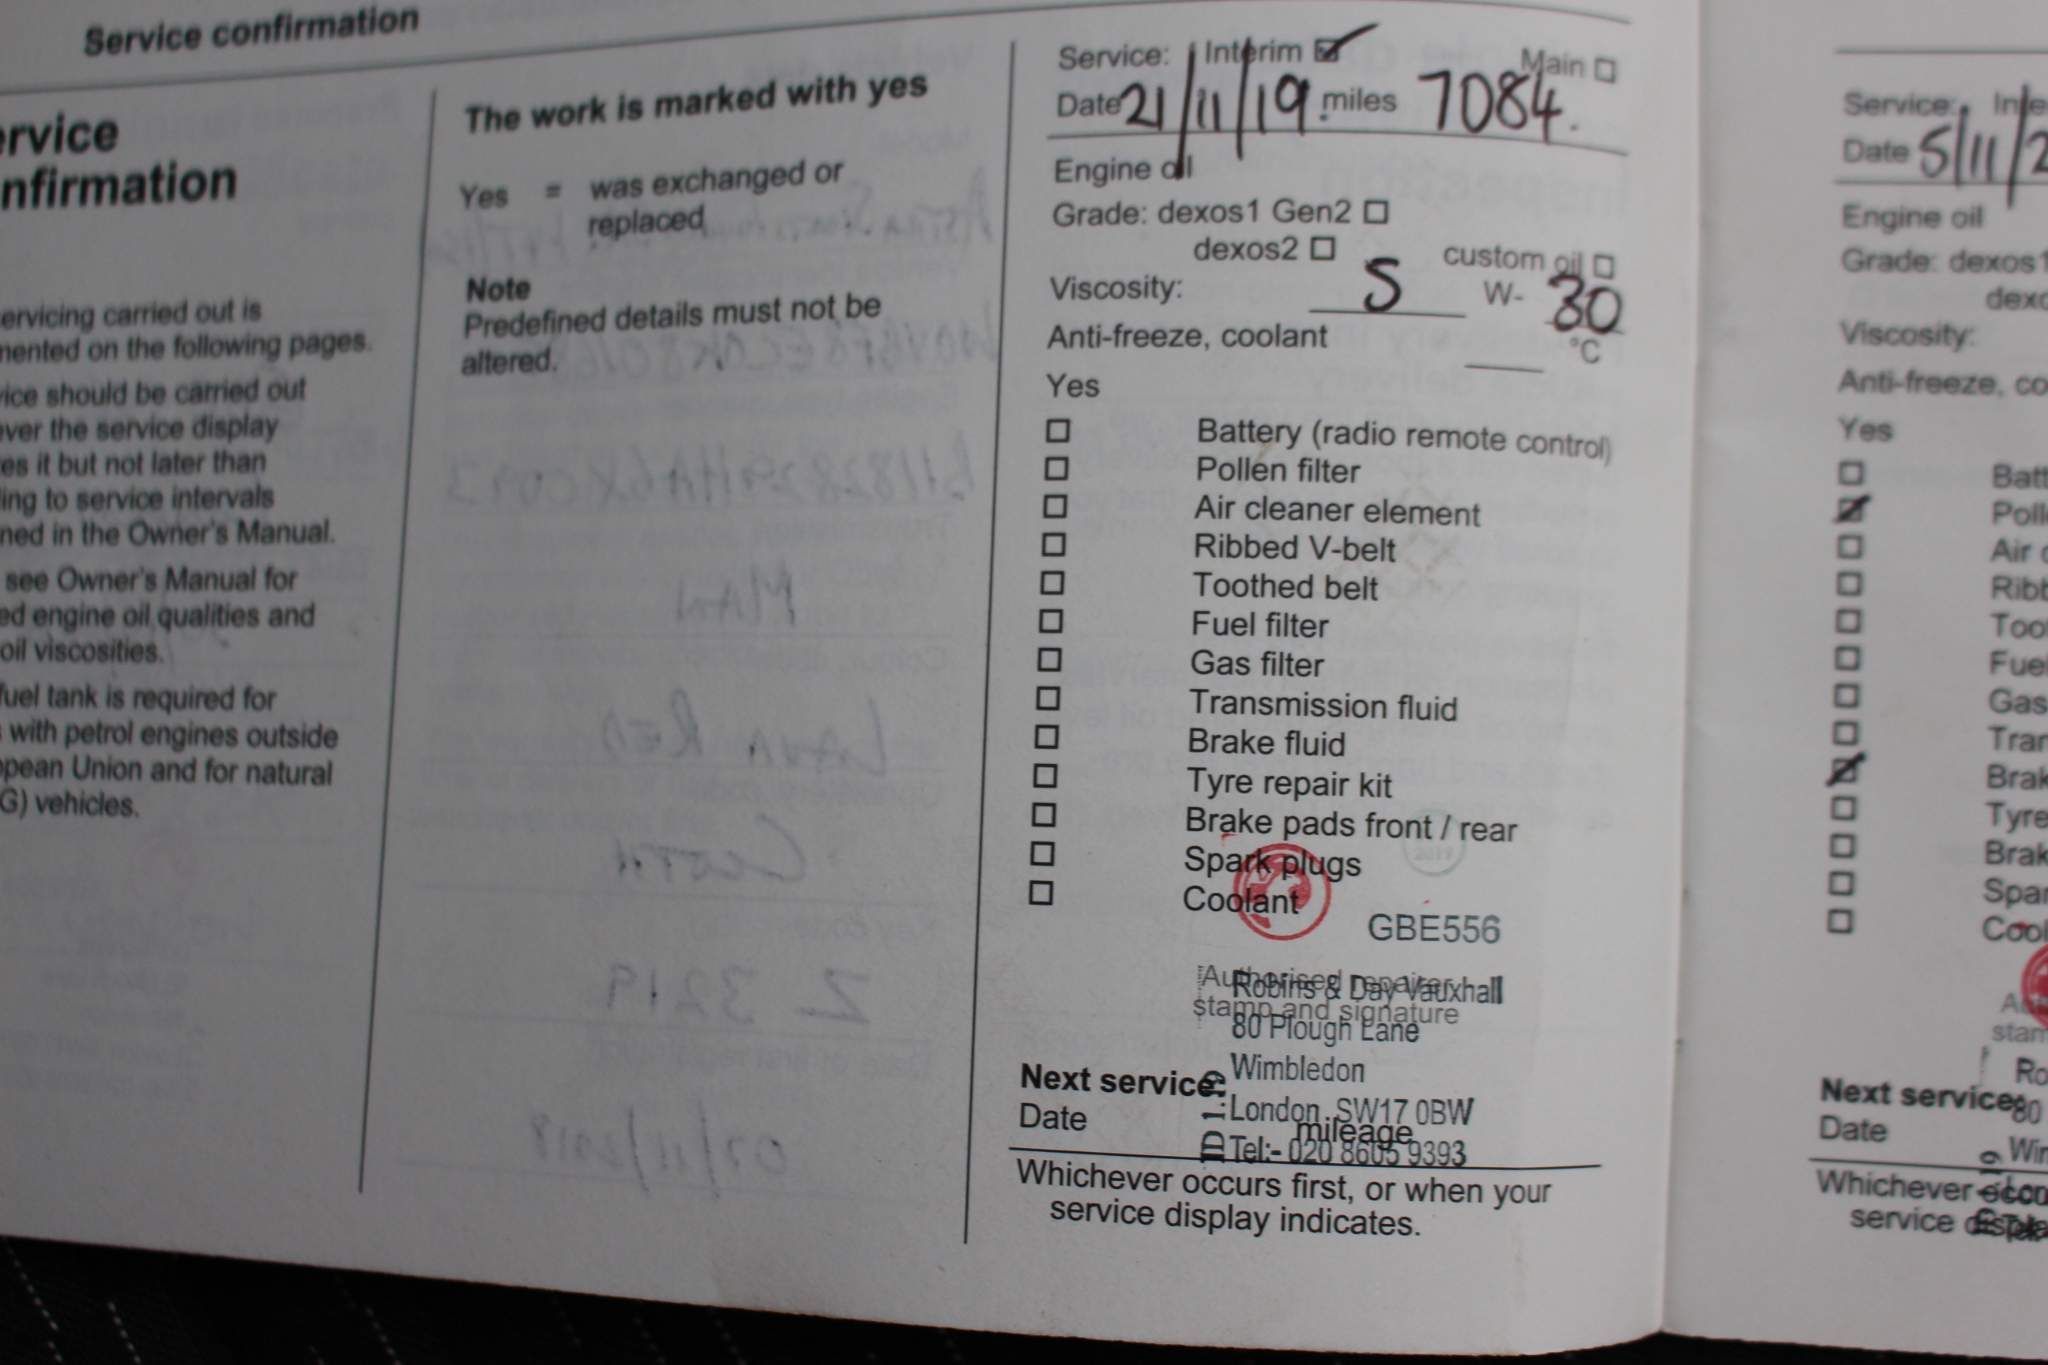 Service confirmation
ervice
nfirmation
ervicing carried out is
mented on the following pages.
vice should be carried out
ever the service display
es it but not later than
ding to service intervals
ned in the Owner's Manual.
see Owner's Manual for
ed engine oil qualities and
oil viscosities.
fuel tank is required for
s with petrol engines outside
opean Union and for natural
G) vehicles.
The work is marked with yes
Yes = was exchanged or
replaced
Note
Predefined details must not be
altered.
Service: Interim Main
Date 21/11/19. miles 7084.
Engine oil
Grade: dexos1 Gen2
dexos2 custom oil
Viscosity: 5 W- 30
Anti-freeze, coolant °C
Yes
Battery (radio remote control)
Pollen filter
Air cleaner element
Ribbed V-belt
Toothed belt
Fuel filter
Gas filter
Transmission fluid
Brake fluid
Tyre repair kit
Brake pads front / rear
Spark plugs
Coolant
GBE556
Authorised repairer
stamp and signature
Robins & Day Vauxhall
80 Plough Lane
Wimbledon
London. SW17 0BW
Tel:- 020 8605 9393
Next service:
Date mileage
Whichever occurs first, or when your
service display indicates.
Service: Inte
Date 5/11/2
Engine oil
Grade: dexos1
dexo
Viscosity:
Anti-freeze, co
Yes
Batt
Polle
Air c
Ribb
Too
Fuel
Gas
Tran
Brak
Tyre
Brak
Spar
Cool
Au
stam
Ro
80
Wim
Next service:
Date
Whichever occu
service displa